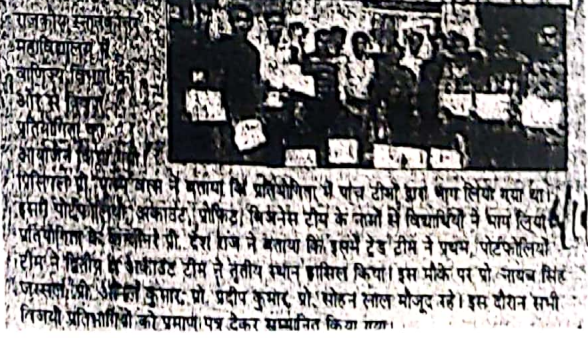 राजकीय स्नातकोत्तर
महाविद्यालय में
वाणिज्य विभाग की
ओर से
प्रतियोगिता का
आयोजन किया गया।
प्रिंसिपल प्रो. वत्स ने बताया कि प्रतियोगिता में पांच टीमों द्वारा भाग लिया गया था।
इसमें पोर्टफोलियो, अकाउंट, प्रोफिट, बिजनेस टीम के नामों से विद्यार्थियों ने भाग लिया
प्रतियोगिता के प्रो. देश राज ने बताया कि इसमें ट्रेड टीम ने प्रथम, पोर्टफोलियो
टीम ने द्वितीय व अकाउंट टीम ने तृतीय स्थान हासिल किया। इस मौके पर प्रो. नायब सिंह
जस्सल, प्रो. कुमार, प्रो. प्रदीप कुमार, प्रो. सोहन लाल मौजूद रहे। इस दौरान सभी
विजयी प्रतिभागियों को प्रमाण पत्र देकर सम्मानित किया गया।